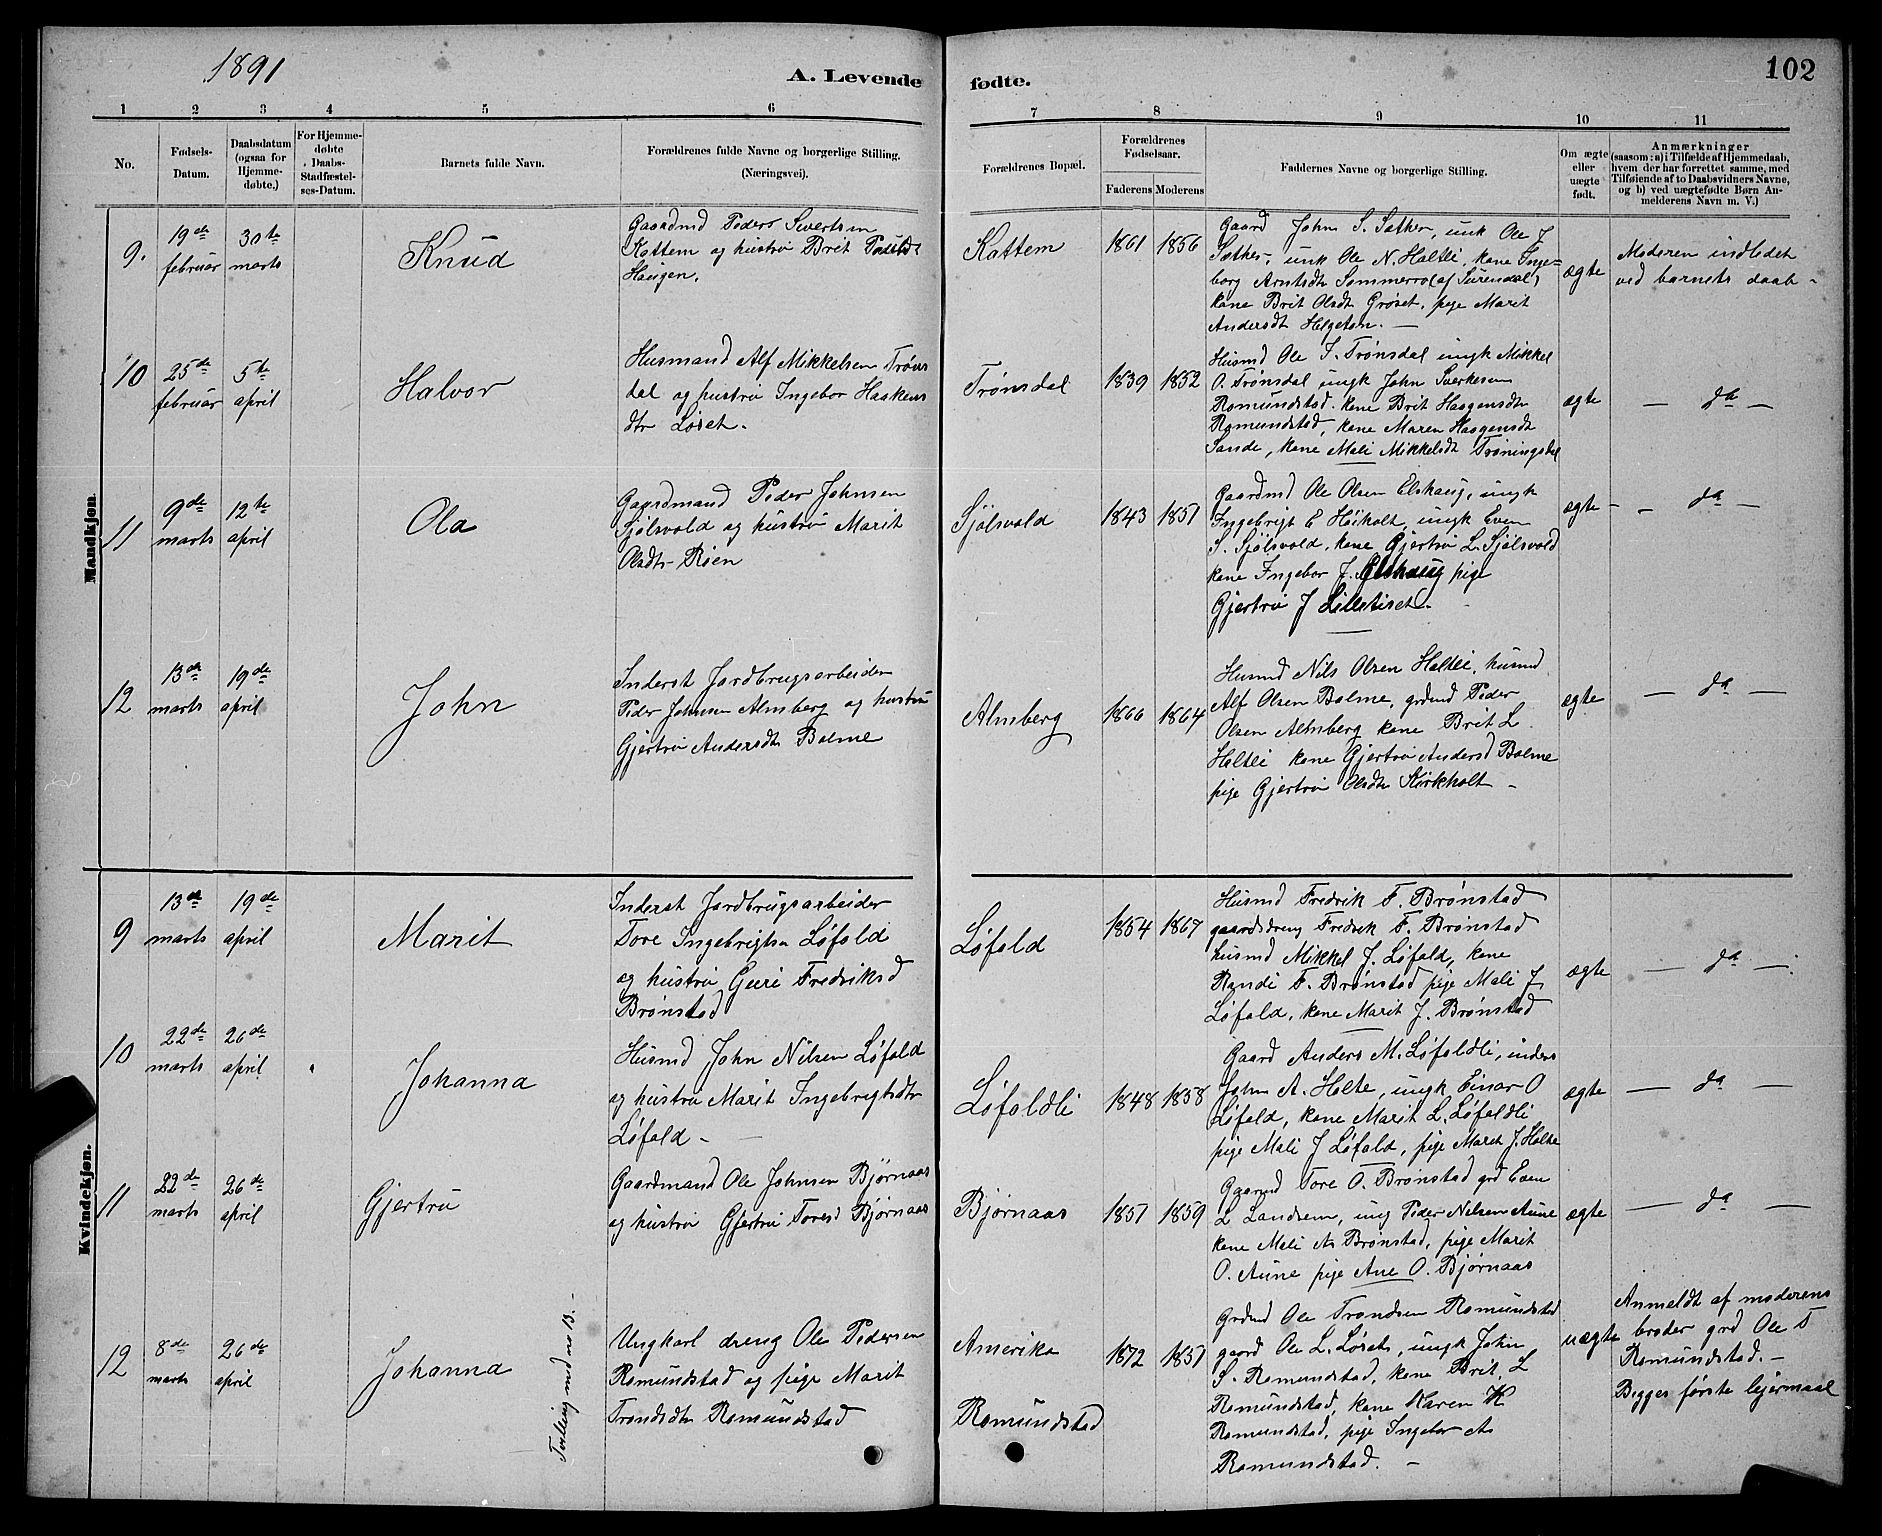 1891
A. Levende
fødte.
102
1 2 3 4 5 6 7 8 9 10 11
No.
Fødsels-
Datum.
Daabsdatum
(ogsaa for
Hjemme-
døbte.)
For Hjemme-
døbte
Daabs-
Stadfæstel-
ses-Datum.
Barnets fulde Navn.
Forældrenes fulde Navne og borgerlige Stilling.
(Næringsvei).
Forældrenes Bopæl.
Forældrenes
Fødselsaar.
Faderens Moderens
Faddernes Navne og borgerlige Stilling.
Om ægte
eller
uægte
født.
Anmærkninger
(saasom: a) i Tilfælde af Hjemmedaab,
hvem der har forrettet samme, med
Tilføiende af to Daabsvidners Navne,
og b) ved uægtefødte Børn An-
melderens Navn m. V.)
Mandkjøn.
9.
19de
februar
30te
marts
Knud
Gaardmd Peder Sivertsen
Kattem og hustru Brit
Haugen.
Kattem
1861 1856
Gaard John S. Sæther, unk Ole J
Sæther, unk Ole N. Haltli, kone Inge-
borg Arntsdtr Sommerro (af Surendal)
kone Brit Olsdt Grøset, pige Marit
Andersdt Helgeton. —
ægte
Moderen indledet
ved barnets daab -
10
25de
februar
5te
april
Halvor
Husmand Alf Mikkelsen Trøns
dal og hustru Ingebor Haakens
dtr Løset.
Trønsdal
1839 1852
Husmd Ole I. Trønsdal ungk Mikkel
O. Trønsdal ungk John Sverkesen
Romundstad. kone Brit Haagensdtr
Romundstad, kone Maren Haagensdt
Sande, kone Mali Mikkelsdt Trøningsdal
ægte
— da —
11
9de
marts
12te
april
Ola
Gaardmand Peder Johnsen
Sjølsvold og hustru Marit
Olsdtr Røen
Sjølsvold
1843 1851
Gaardmd Ole Olsen Elshaug, ungk
Ingebrigt E Høiholt, ungk Even
S. Sjølsvold, kone Gjertru L. Sjølsvold
kone Ingebor J. Elshaug pige
Gjertru J Lillesiset.
ægte -
- da -
12
13de
marts
19de
april
John
Inderst Jordbrugsarbeider
Peder Johnsen Almberg og hustru
Gjertru Andersdtr Bolme
Almberg
1866 1864
Husmd Nils Olsen Haltli, husmd
Alf Olsen Bolme, grdmd Peder
Olsen Almberg kone Brit L.
Haltli kone Gjertru Andersd Bolme
pige Gjertru Olsdtr Kirkholt -
ægte
— da —
Kvindekjøn.
9
13de
marts
19de
april
Marit
Inderst Jordbrugsarbeider
Tore Ingebrigtsn Løfald
og hustru Guri Fredriksd
Brønstad
Løfald
1854 1867
Husmd Fredrik F. Brønstad
gaardsdreng Fredrik F. Brønstad
husmd Mikkel J. Løfald, kone
Randi F. Brønstad pige Mali J
Løfald, kone Marit J. Brønstad
ægte
— da —
10
22de
marts
26de
april
Johanna
Husmd John Nilsen Løfald
og hustru Marit Ingebrigtsdtr
Løfald -
Løfaldli
1848 1858
Gaard Anders M. Løfaldli, inders
John A. Holte, ungk Einar O
Løfald, kone Marit L. Løfaldli
pige Mali J Løfald, pige Marit J. Holte
ægte
— da —
11
22de
marts
26de
april
Gjertru
Gaardmand Ole Johnsen Bjørnaas
og hustru Gjertru Toresd Bjørnaas
Bjørnaas
1857 1859
Gaarmd Tore O. Brønstad grd Even
L Landsem, ung Peder Nilsen Aune
kone Mali A. Brønstad, pige Marit
O. Aune pige Ane O. Bjørnaas
ægte
— da —
12
8de
marts
26de
april
Johanna
Tvilling med no 13.-
Ungkarl dreng Ole Pedersen
Romundstad og pige Marit
Trondsdtr Romundstad
Amerika
Romundstad
1872 1851
Grdmd Ole Trondsen Romundstad
gaard Ole L. Løset, ungk John
S. Romundstad, kone Brit L
Romundstad, kone Maren H
Romundstad, pige Ingebor A
Romundstad. -
uægte
Anmeldt af moderens
broder grd Ole T
Romundstad. -
Begges første lejermaal